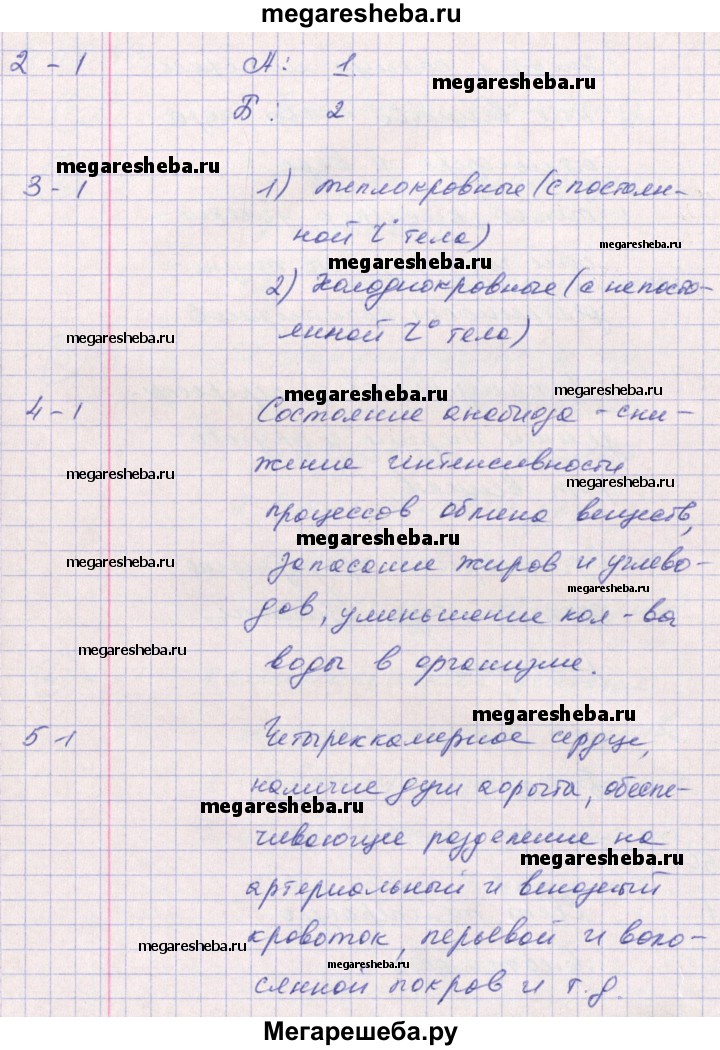 megaresheba.ru
2 - 1 А: 1
megaresheba.ru
Б: 2
megaresheba.ru
3 - 1 1) теплокровные (с постоян-
ной t° тела)
megaresheba.ru
megaresheba.ru
2) Холоднокровные (с непосто-
янной t° тела)
megaresheba.ru
megaresheba.ru
megaresheba.ru
megaresheba.ru
4 - 1 Состояние анабиоза - сни-
жение интенсивности
megaresheba.ru
megaresheba.ru
процессов обмена веществ,
megaresheba.ru
запасание жиров и углево-
megaresheba.ru
megaresheba.ru
дов, уменьшение кол-ва
megaresheba.ru
воды в организме.
megaresheba.ru
5 - 1 Четыреккамерное сердце,
наличие дуги аорыта, обеспе-
megaresheba.ru
чивающие разделение на
megaresheba.ru
артериальный и венозный
кровоток, перьевой и воло-
megaresheba.ru
megaresheba.ru
сянной покров и т.д.
Мегарешеба.ру